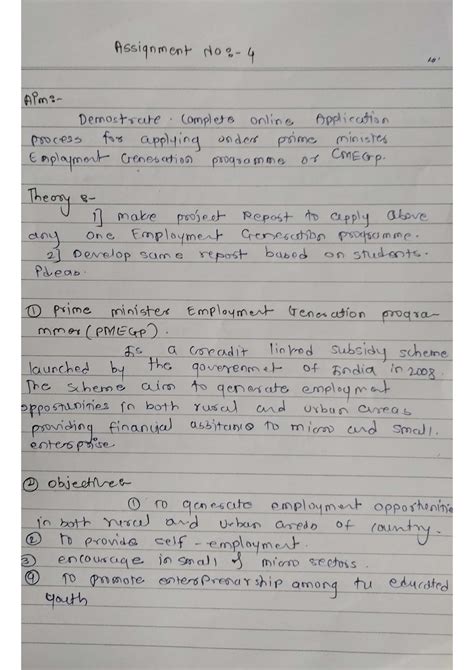 Assignment No:- 4
Aim:-
Demostrate complete online Application
process for applying under prime minister
Employment Generation programme or CMEGP.
Theory :-
1] make project Repost to apply above
any one Employment Generation programme.
2] Develop same repost based on students.
Ideas.
① prime minister Employment Generation progra-
mmer (PMEGP).
Is a coreadit linked subsidy scheme
launched by the goverenmet of India in 2008
The scheme aim to generate employment
oppostunities in both rural and urban areas
providing financial assitance to micro and small.
enterprise.
② objectives
① To generate employment opportunities
in both rural and urban areas of country.
② to provide self-employment.
③ encourage in small of micro sectors.
④ To promote enterprenarship among the educated
youth